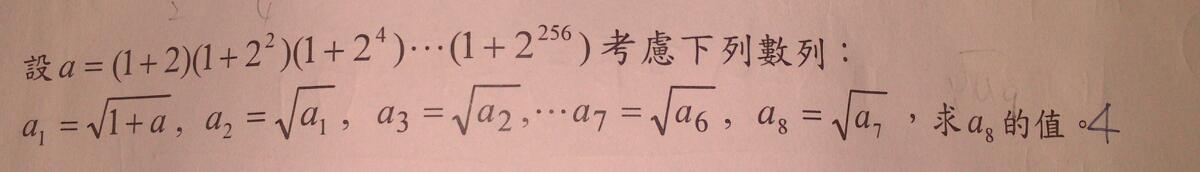 設 a = (1+2)(1+2²)(1+2⁴)⋯(1+2²⁵⁶) 考慮下列數列：
a₁ = √(1+a), a₂ = √a₁, a₃ = √a₂,⋯a₇ = √a₆, a₈ = √a₇，求a₈的值。4